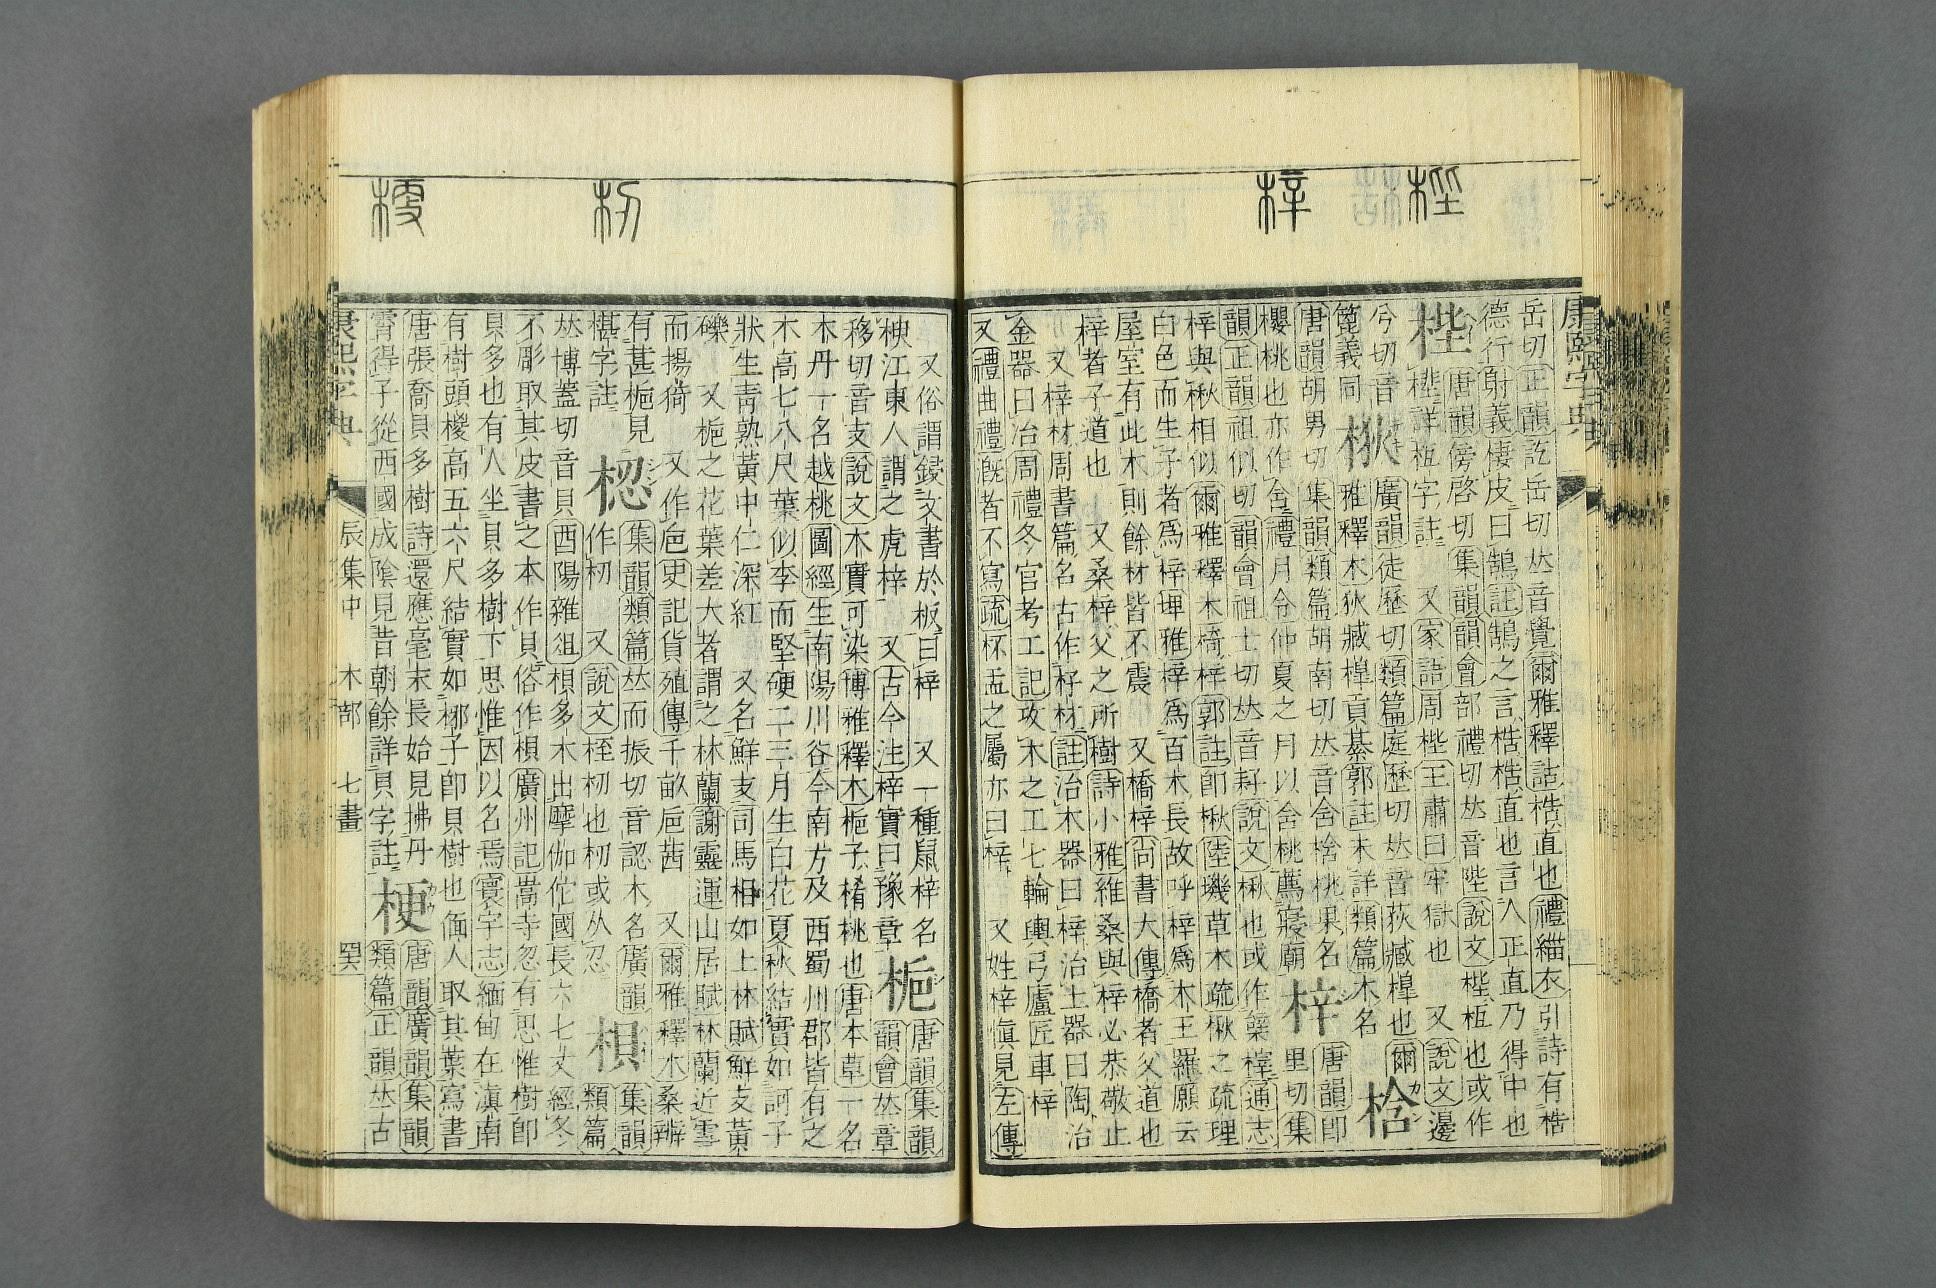 梐 梓
康熙字典
岳切正韻訖岳切𠀤音覺爾雅釋詁梏直也禮緇衣引詩有梏
德行射義棲皮曰鵠註鵠之言梏梏直也言人正直乃得中也
梐 唐韻傍啓切集韻韻會部禮切𠀤音陛說文梐枑也或作
梐詳枑字註 又家語周梐王肅曰牢獄也 又說文邊
兮切音篦義同
梑 廣韻徒歷切類篇庭歷切𠀤音荻臧槹也爾
雅釋木狄臧槹貢綦郭註未詳類篇木名
梒
唐韻胡男切集韻類篇胡南切𠀤音含梒桃果名
櫻桃也亦作含禮月令仲夏之月以含桃薦寢廟
梓 唐韻卽里切集
韻正韻祖似切韻會祖士切𠀤音子說文楸也或作榟通志
梓與楸相似爾雅釋木椅梓郭註卽楸陸璣草木疏楸之疏理
白色而生子者爲梓埤雅梓爲百木長故呼梓爲木王羅願云
屋室有此木則餘材皆不震 又橋梓尚書大傳橋者父道也
梓者子道也 又桑梓父之所樹詩小雅維桑與梓必恭敬止
又梓材周書篇名古作杍材註治木器曰梓治土器曰陶治
金器曰冶周禮冬官考工記攻木之工七輪輿弓廬匠車梓
又禮曲禮漑者不寫疏杯盂之屬亦曰梓 又姓梓愼見左傳
梗 杒
又俗謂鋟文書於板曰梓 又一種鼠梓名
楰江東人謂之虎梓 又古今注梓實曰豫章
梔 唐韻集韻韻會𠀤章
移切音支說文木實可染博雅釋木梔子楿桃也唐本草一名
木丹一名越桃圖經生南陽川谷今南方及西蜀州郡皆有之
木高七八尺葉似李而堅硬二三月生白花夏秋結實如訶子
狀生靑熟黃中仁深紅 又名鮮支司馬相如上林賦鮮支黃
礫 又梔之花葉差大者謂之林蘭謝靈運山居賦林蘭近雪
而揚猗 又作巵史記貨殖傳千畝巵茜 又爾雅釋木桑辨
有葚梔見
椹字註
梕 集韻類篇𠀤而振切音認木名廣韻
作杒 又說文桎杒也杒或从忍
梖 集韻類篇
𠀤博蓋切音貝酉陽雜俎梖多木出摩伽佗國長六七丈經冬
不彫取其皮書之本作貝俗作梖廣州記嵩寺忽有思惟樹卽
貝多也有人坐貝多樹下思惟因以名焉寰宇志緬甸在滇南
有樹頭㯶高五六尺結實如椰子卽貝樹也緬人取其葉寫書
唐張喬貝多樹詩還應毫末長始見拂丹
霄得子從西國成陰見昔朝餘詳貝字註
梗 唐韻廣韻集韻
類篇正韻𠀤古
康熙字典 辰集中 木部 七畫